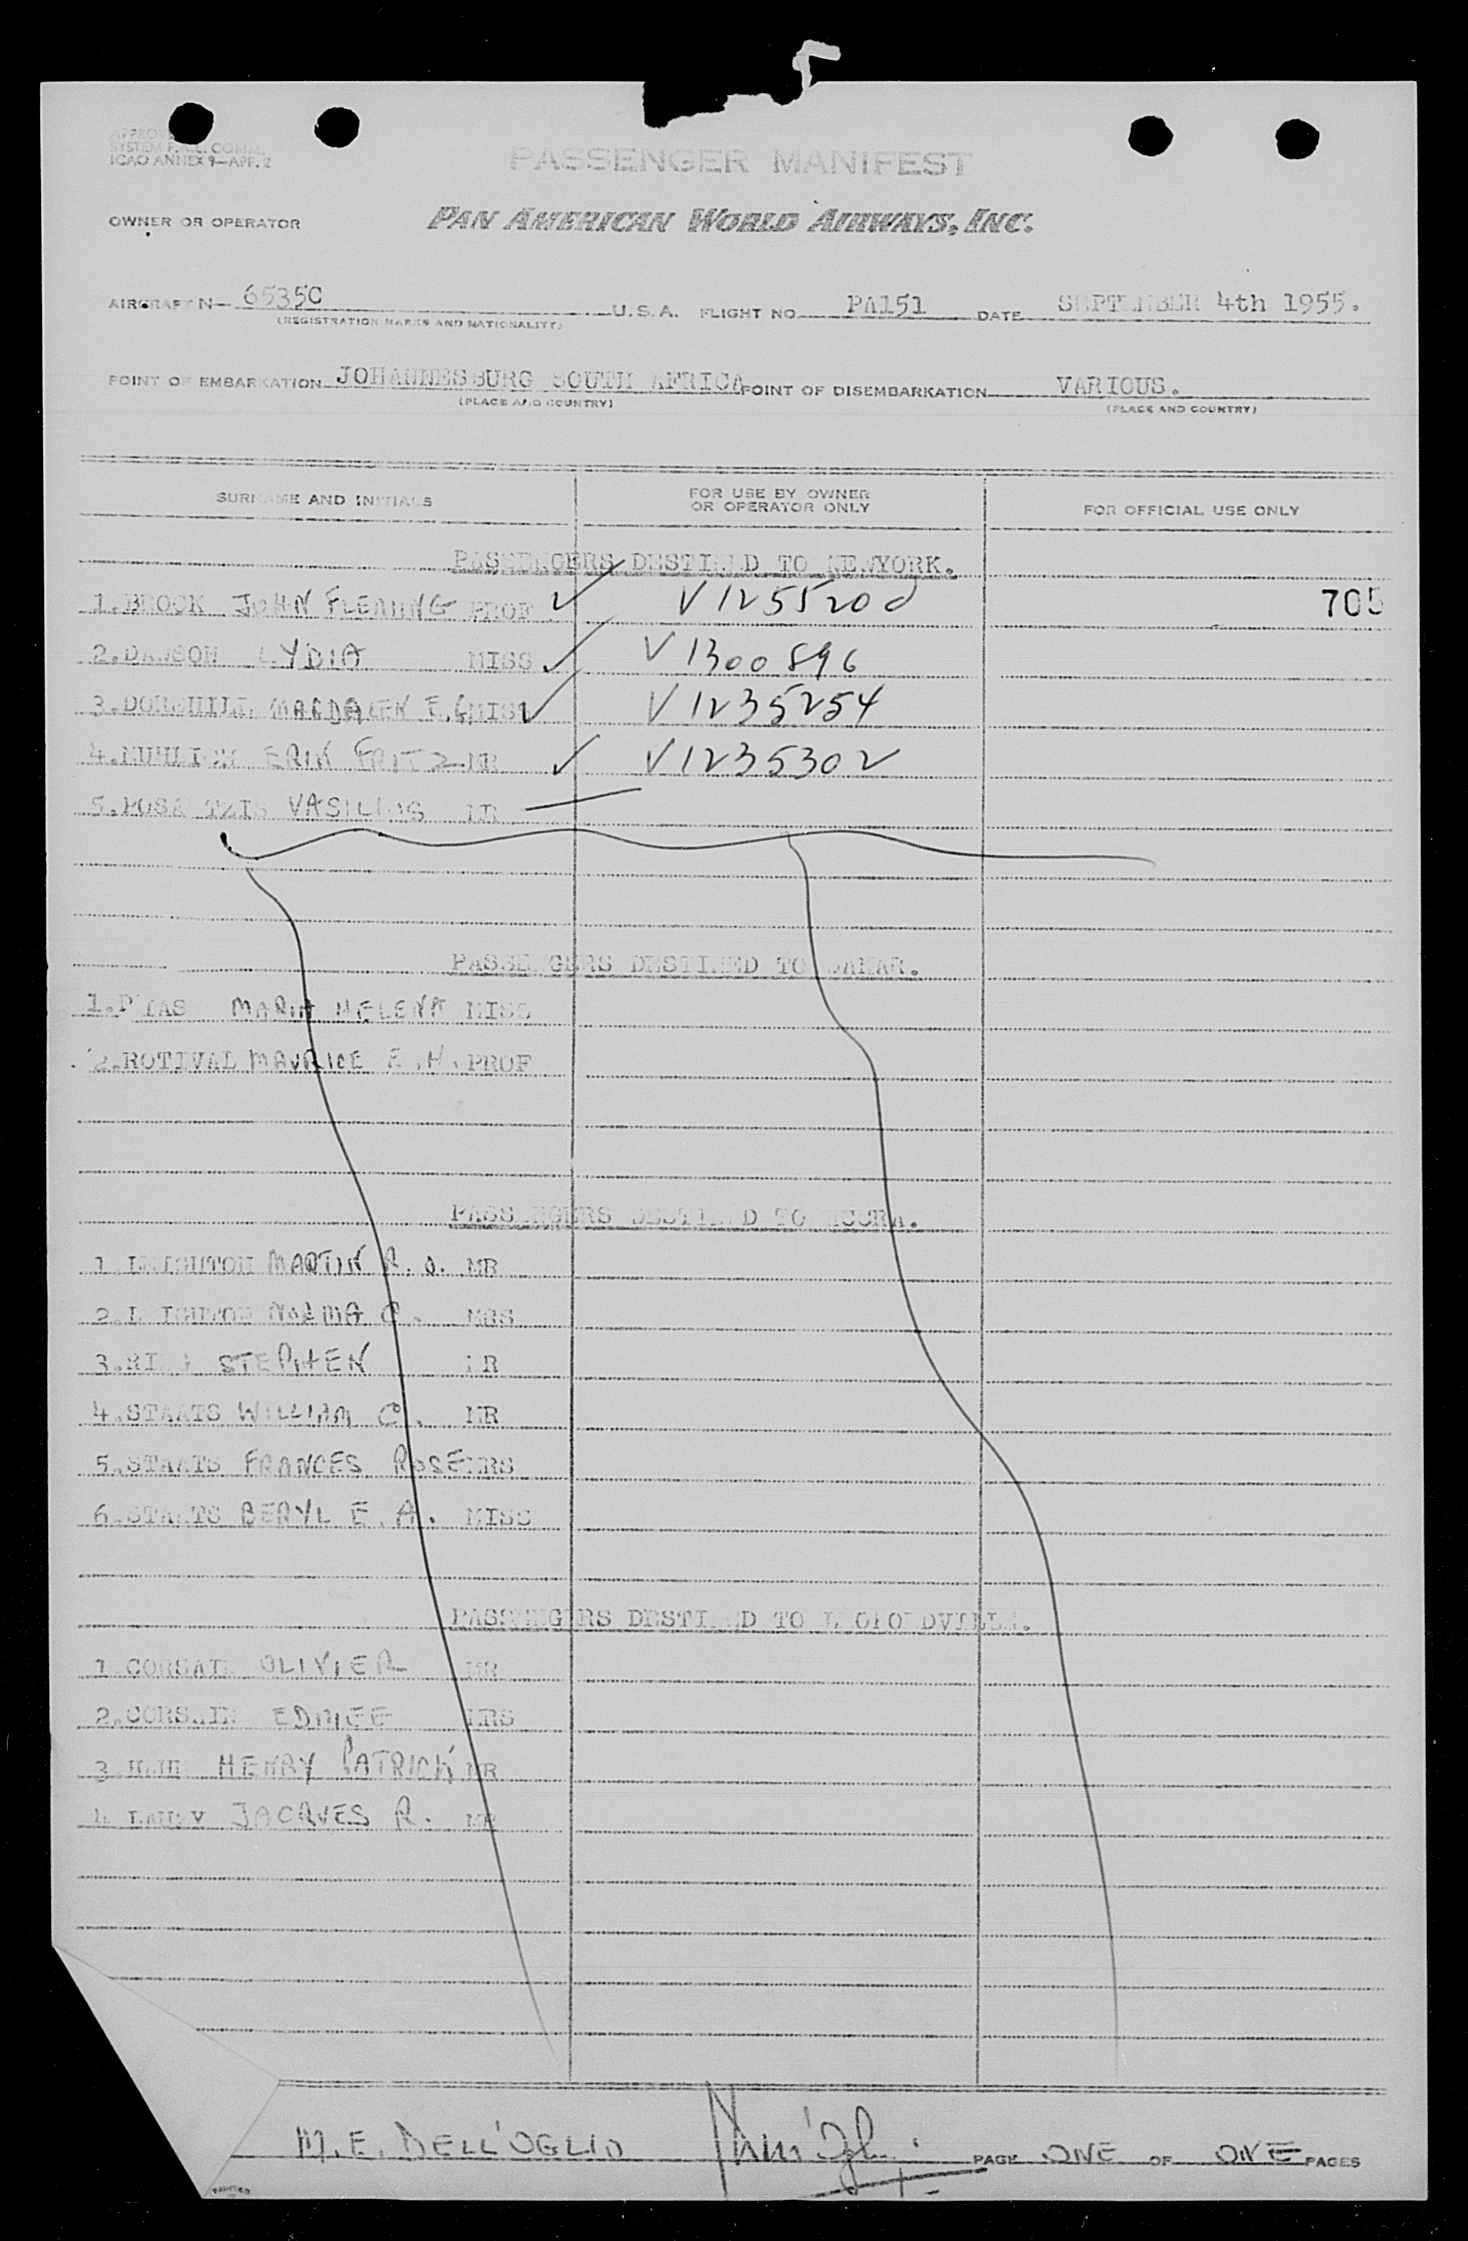 ICAO ANNEX 9—APP. 2
PASSENGER MANIFEST
OWNER OR OPERATOR PAN AMERICAN WORLD AIRWAYS, INC.
AIRCRAFT N— 6535C U. S. A. FLIGHT NO. PA151 DATE SEPTEMBER 4th 1955.
(REGISTRATION MARKS AND NATIONALITY)
POINT OF EMBARKATION JOHANNESBURG SOUTH AFRICA POINT OF DISEMBARKATION VARIOUS.
(PLACE AND COUNTRY) (PLACE AND COUNTRY)
SURNAME AND INITIALS FOR USE BY OWNER OR OPERATOR ONLY FOR OFFICIAL USE ONLY
PASSENGERS DESTINED TO NEWYORK.
1. JOHN FLEMING PROF V1255200 705
2.DAWSON LYDIA MISS V1300896
3. MAGDALEN E.G. MISS V1235254
4. ERIK FRITZ MR V1235302
5. VASILIOS MR
PASSENGERS DESTINED TO DAKAR.
1. MARIA HELENA MISS
2.ROTIVAL MAURICE E.H. PROF
PASSENGERS DESTINED TO ACCRA.
1 LEIGHTON MARTIN R. MR
2.LEIGHTON C. MRS
3. STEPHEN MR
4.STAATS WILLIAM C. MR
5.STAATS FRANCES ROSE MRS
6.STAATS BERYL E.A. MISS
PASSENGERS DESTINED TO LEOPOLDVILLE.
1 CORSAIN OLIVIER MR
2.CORSAIN EDMEE MRS
3 HENRY PATRICK MR
4 JACQUES R. MR
M.E. DELL'OGLIO PAGE ONE OF ONE PAGES